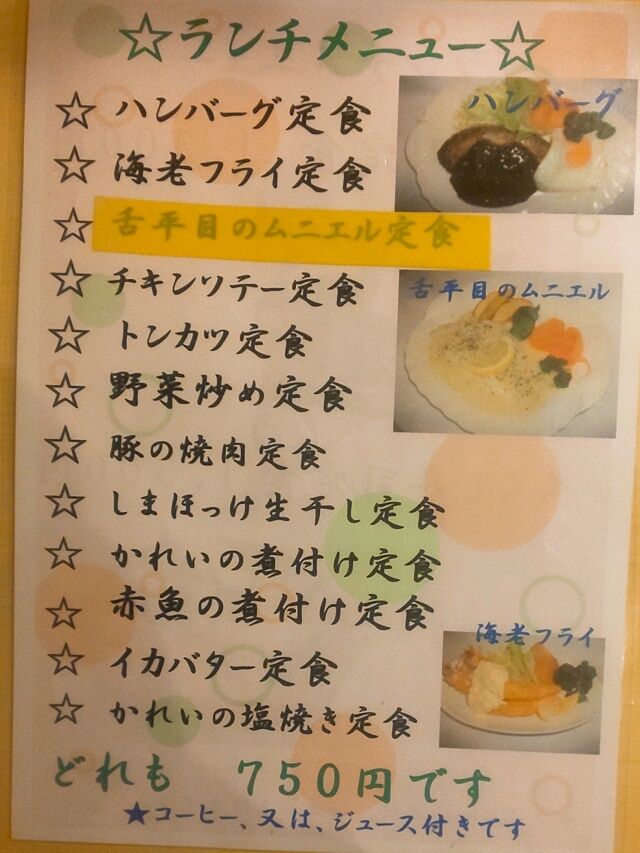 ☆ランチメニュー☆
☆ ハンバーグ定食
☆ 海老フライ定食
☆ 舌平目のムニエル定食
☆ チキンソテー定食
☆ トンカツ定食
☆ 野菜炒め定食
☆ 豚の焼肉定食
☆ しまほっけ生干し定食
☆ かれいの煮付け定食
☆ 赤魚の煮付け定食
☆ イカバター定食
☆ かれいの塩焼き定食
どれも 750円です
★コーヒー、又は、ジュース付きです
ハンバーグ
舌平目のムニエル
海老フライ